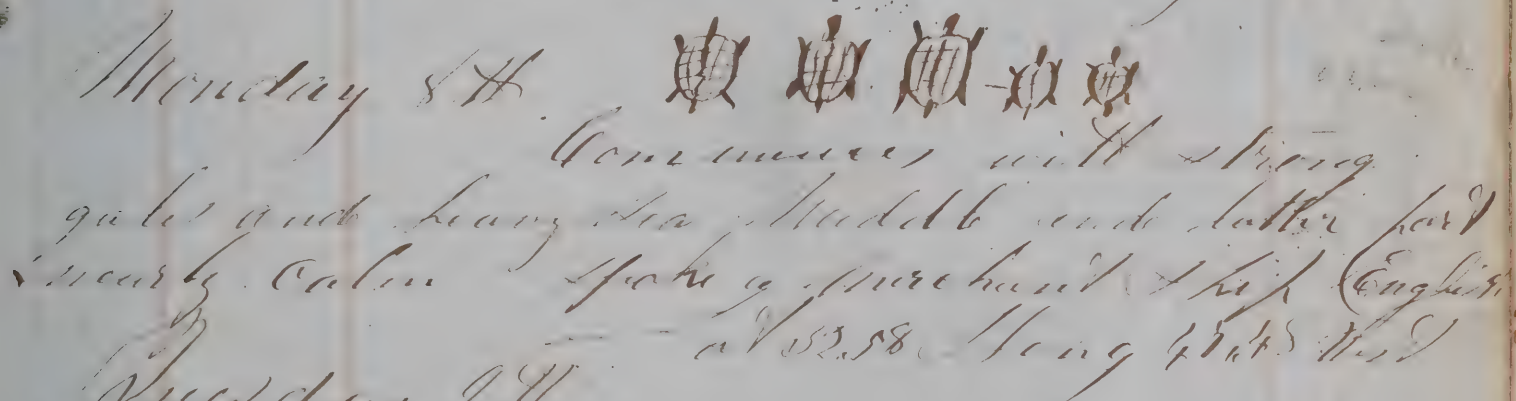 Monday 8th
Commences with strong
gales and heavy sea Middle and latter part
nearly Calm Spoke a merchant ship (English
Lat 52.58 S Long West
Tuesday 9th